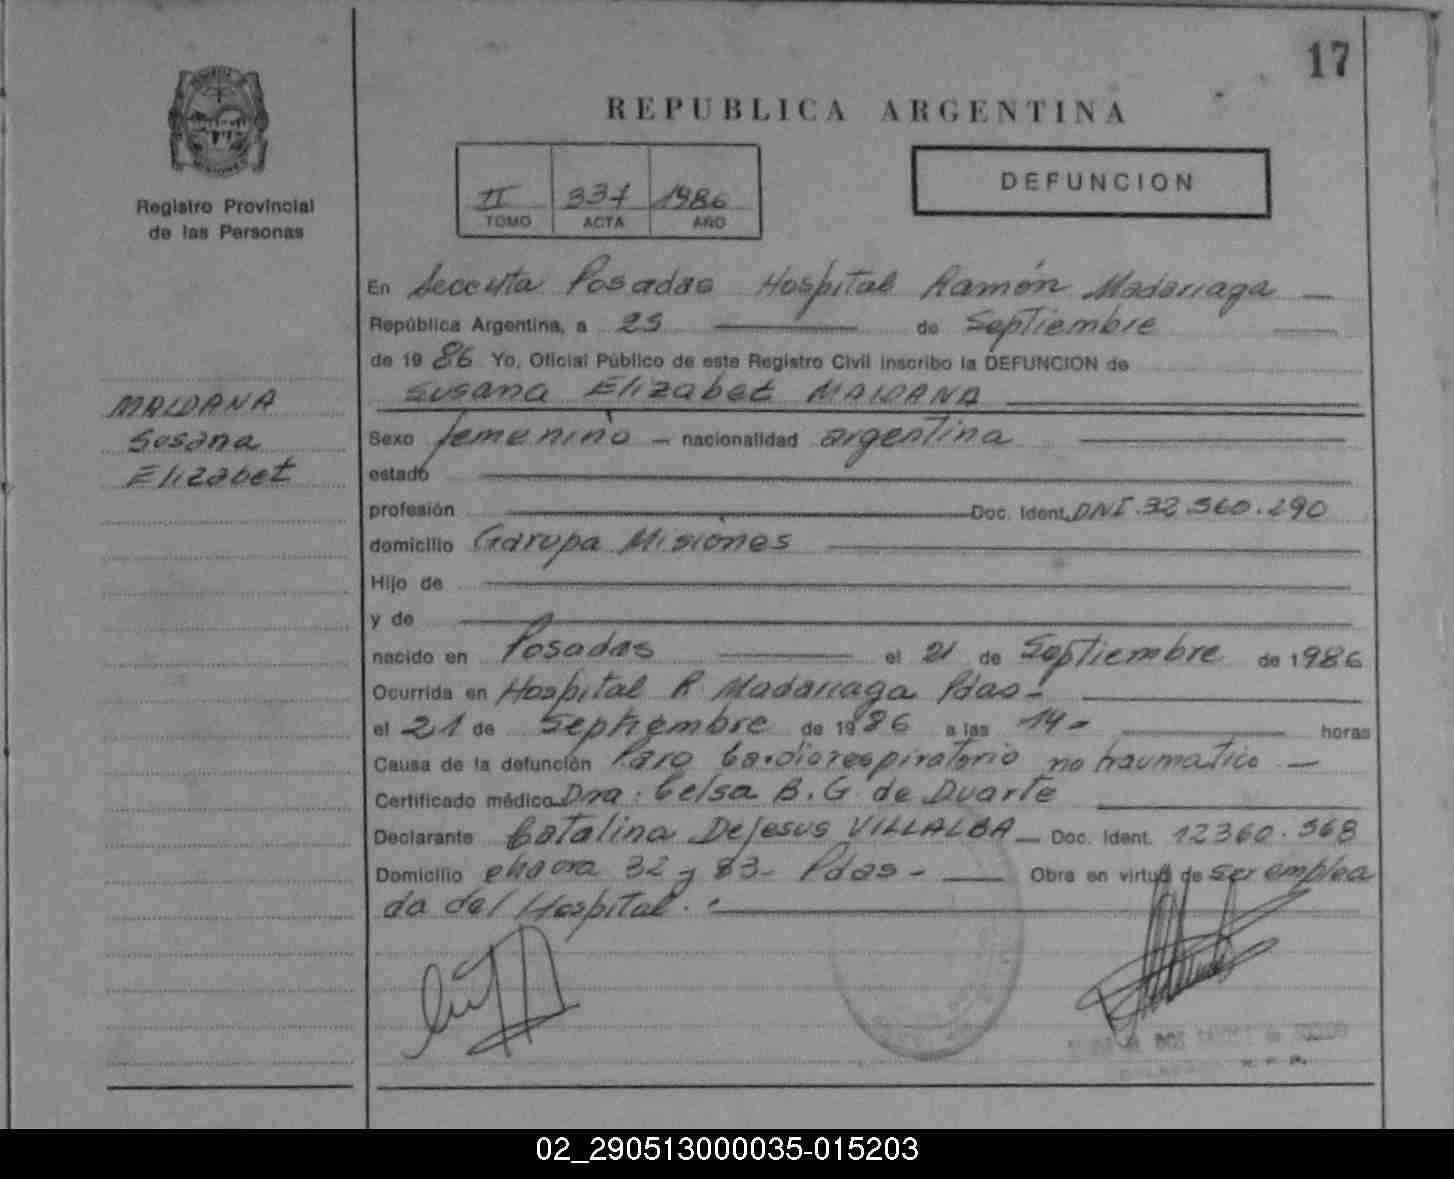 17
REPUBLICA ARGENTINA
II 337 1986
TOMO ACTA AÑO
DEFUNCION
Registro Provincial
de las Personas
En Seccuta Posadas Hospital Ramón Madariaga
República Argentina, a 25 de Septiembre
de 1986 Yo, Oficial Público de este Registro Civil inscribo la DEFUNCION de
Susana Elizabet MALDANA
MALDANA
Susana
Elizabet
Sexo femenino - nacionalidad argentina
estado
profesión Doc. Ident. DNI. 32.360.290
domicilio Garupa Misiones
Hijo de
y de
nacido en Posadas el 21 de Septiembre de 1986
Ocurrida en Hospital R Madariaga Pdas-
el 21 de Septiembre de 1986 a las 14- horas
Causa de la defunción Paro Cardiorespiratorio no traumatico -
Certificado médico Dra: Celsa B. G de Duarte
Declarante Catalina Dejesus VILLALBA - Doc. Ident. 12360.568
Domicilio chacra 32 y 83- Pdas- Obra en virtud de ser emplea
da del Hospital.
02_290513000035-015203